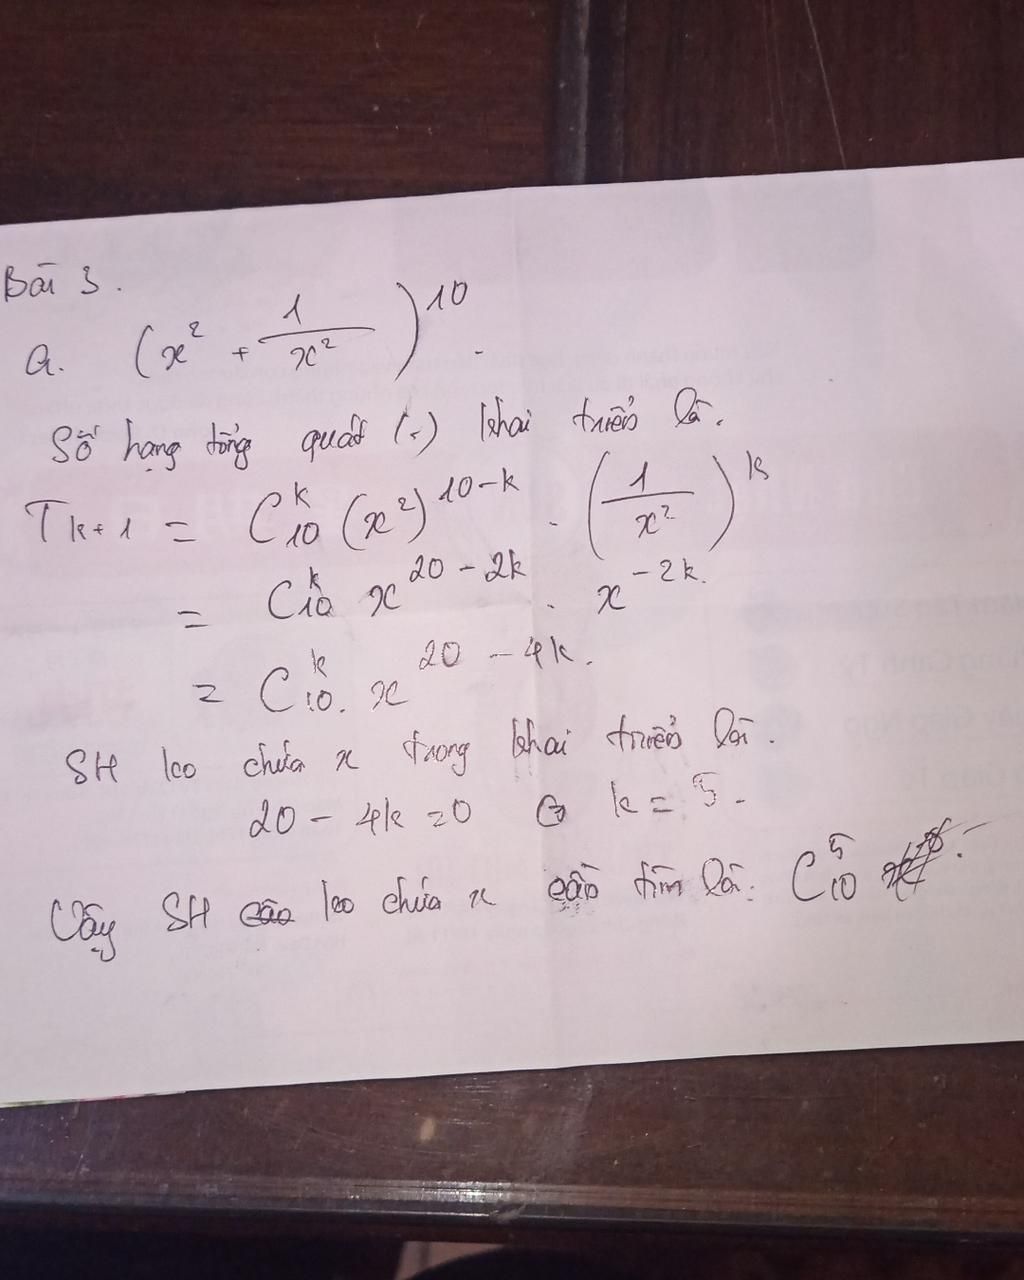 Bài 3.
a. (x² + 1/x²)¹⁰.
Số hạng tổng quát (.) khai triển là.
T k+1 = C₁₀ᵏ (x²)¹⁰⁻ᵏ . (1/x²)ᵏ
= C₁₀ᵏ x²⁰⁻²ᵏ . x⁻²ᵏ.
= C₁₀ᵏ. x²⁰⁻⁴ᵏ.
SH ko chứa x trong khai triển là.
20 - 4k = 0 ⇔ k = 5.
Vậy SH ko chứa x cần tìm là: C₁₀⁵